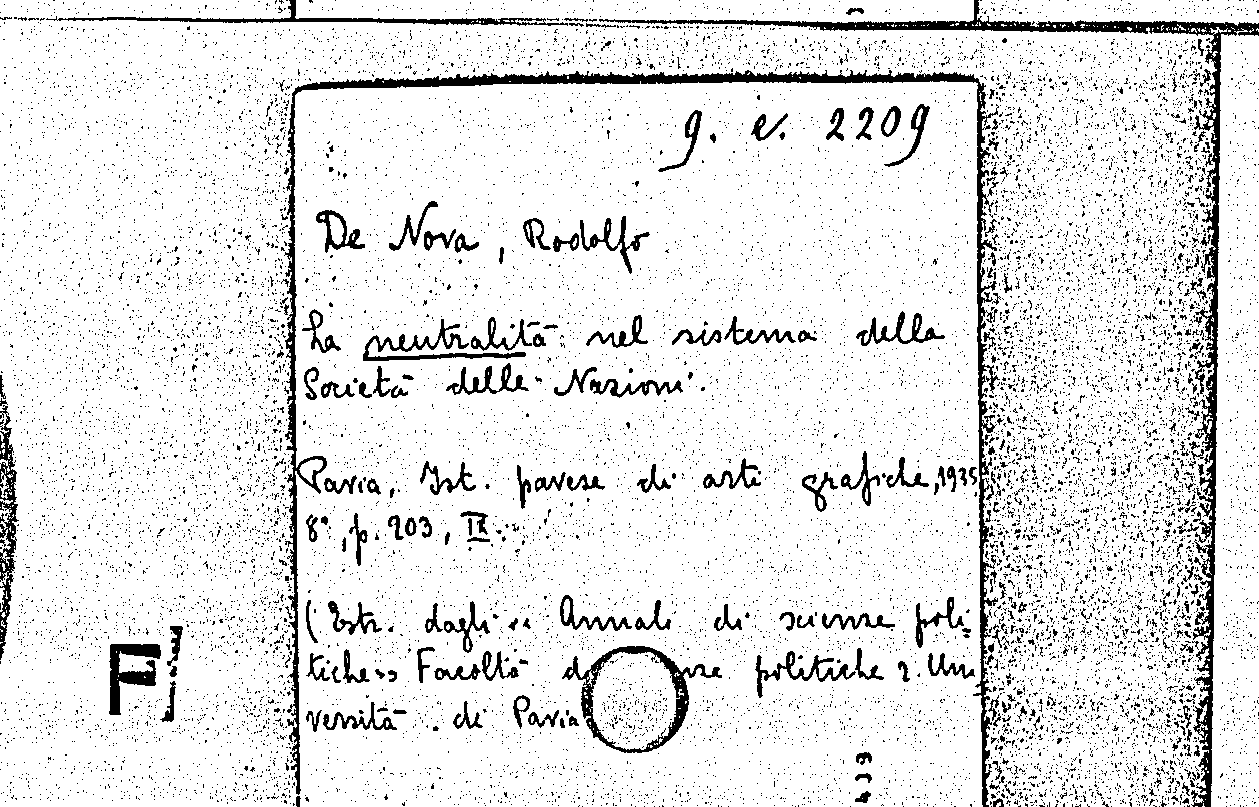 g. e. 2209
De Nova, Rodolfo
La neutralità nel sistema della
Società delle Nazioni.
Pavia, Ist. pavese di arti grafiche, 1935
8°, p. 203, IX.
(Estr. dagli «Annali di scienze poli=
tiche» Facoltà politiche R. Uni=
versità di Pavia